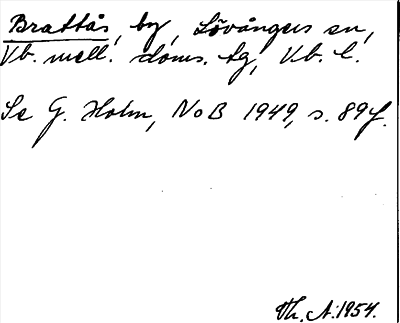 Brattås, by, Lövångers sn,
Vb. mell. doms. tg, Vb. l.
Se G. Holm, NoB 1949, s. 89 f.
Th. A. 1954.